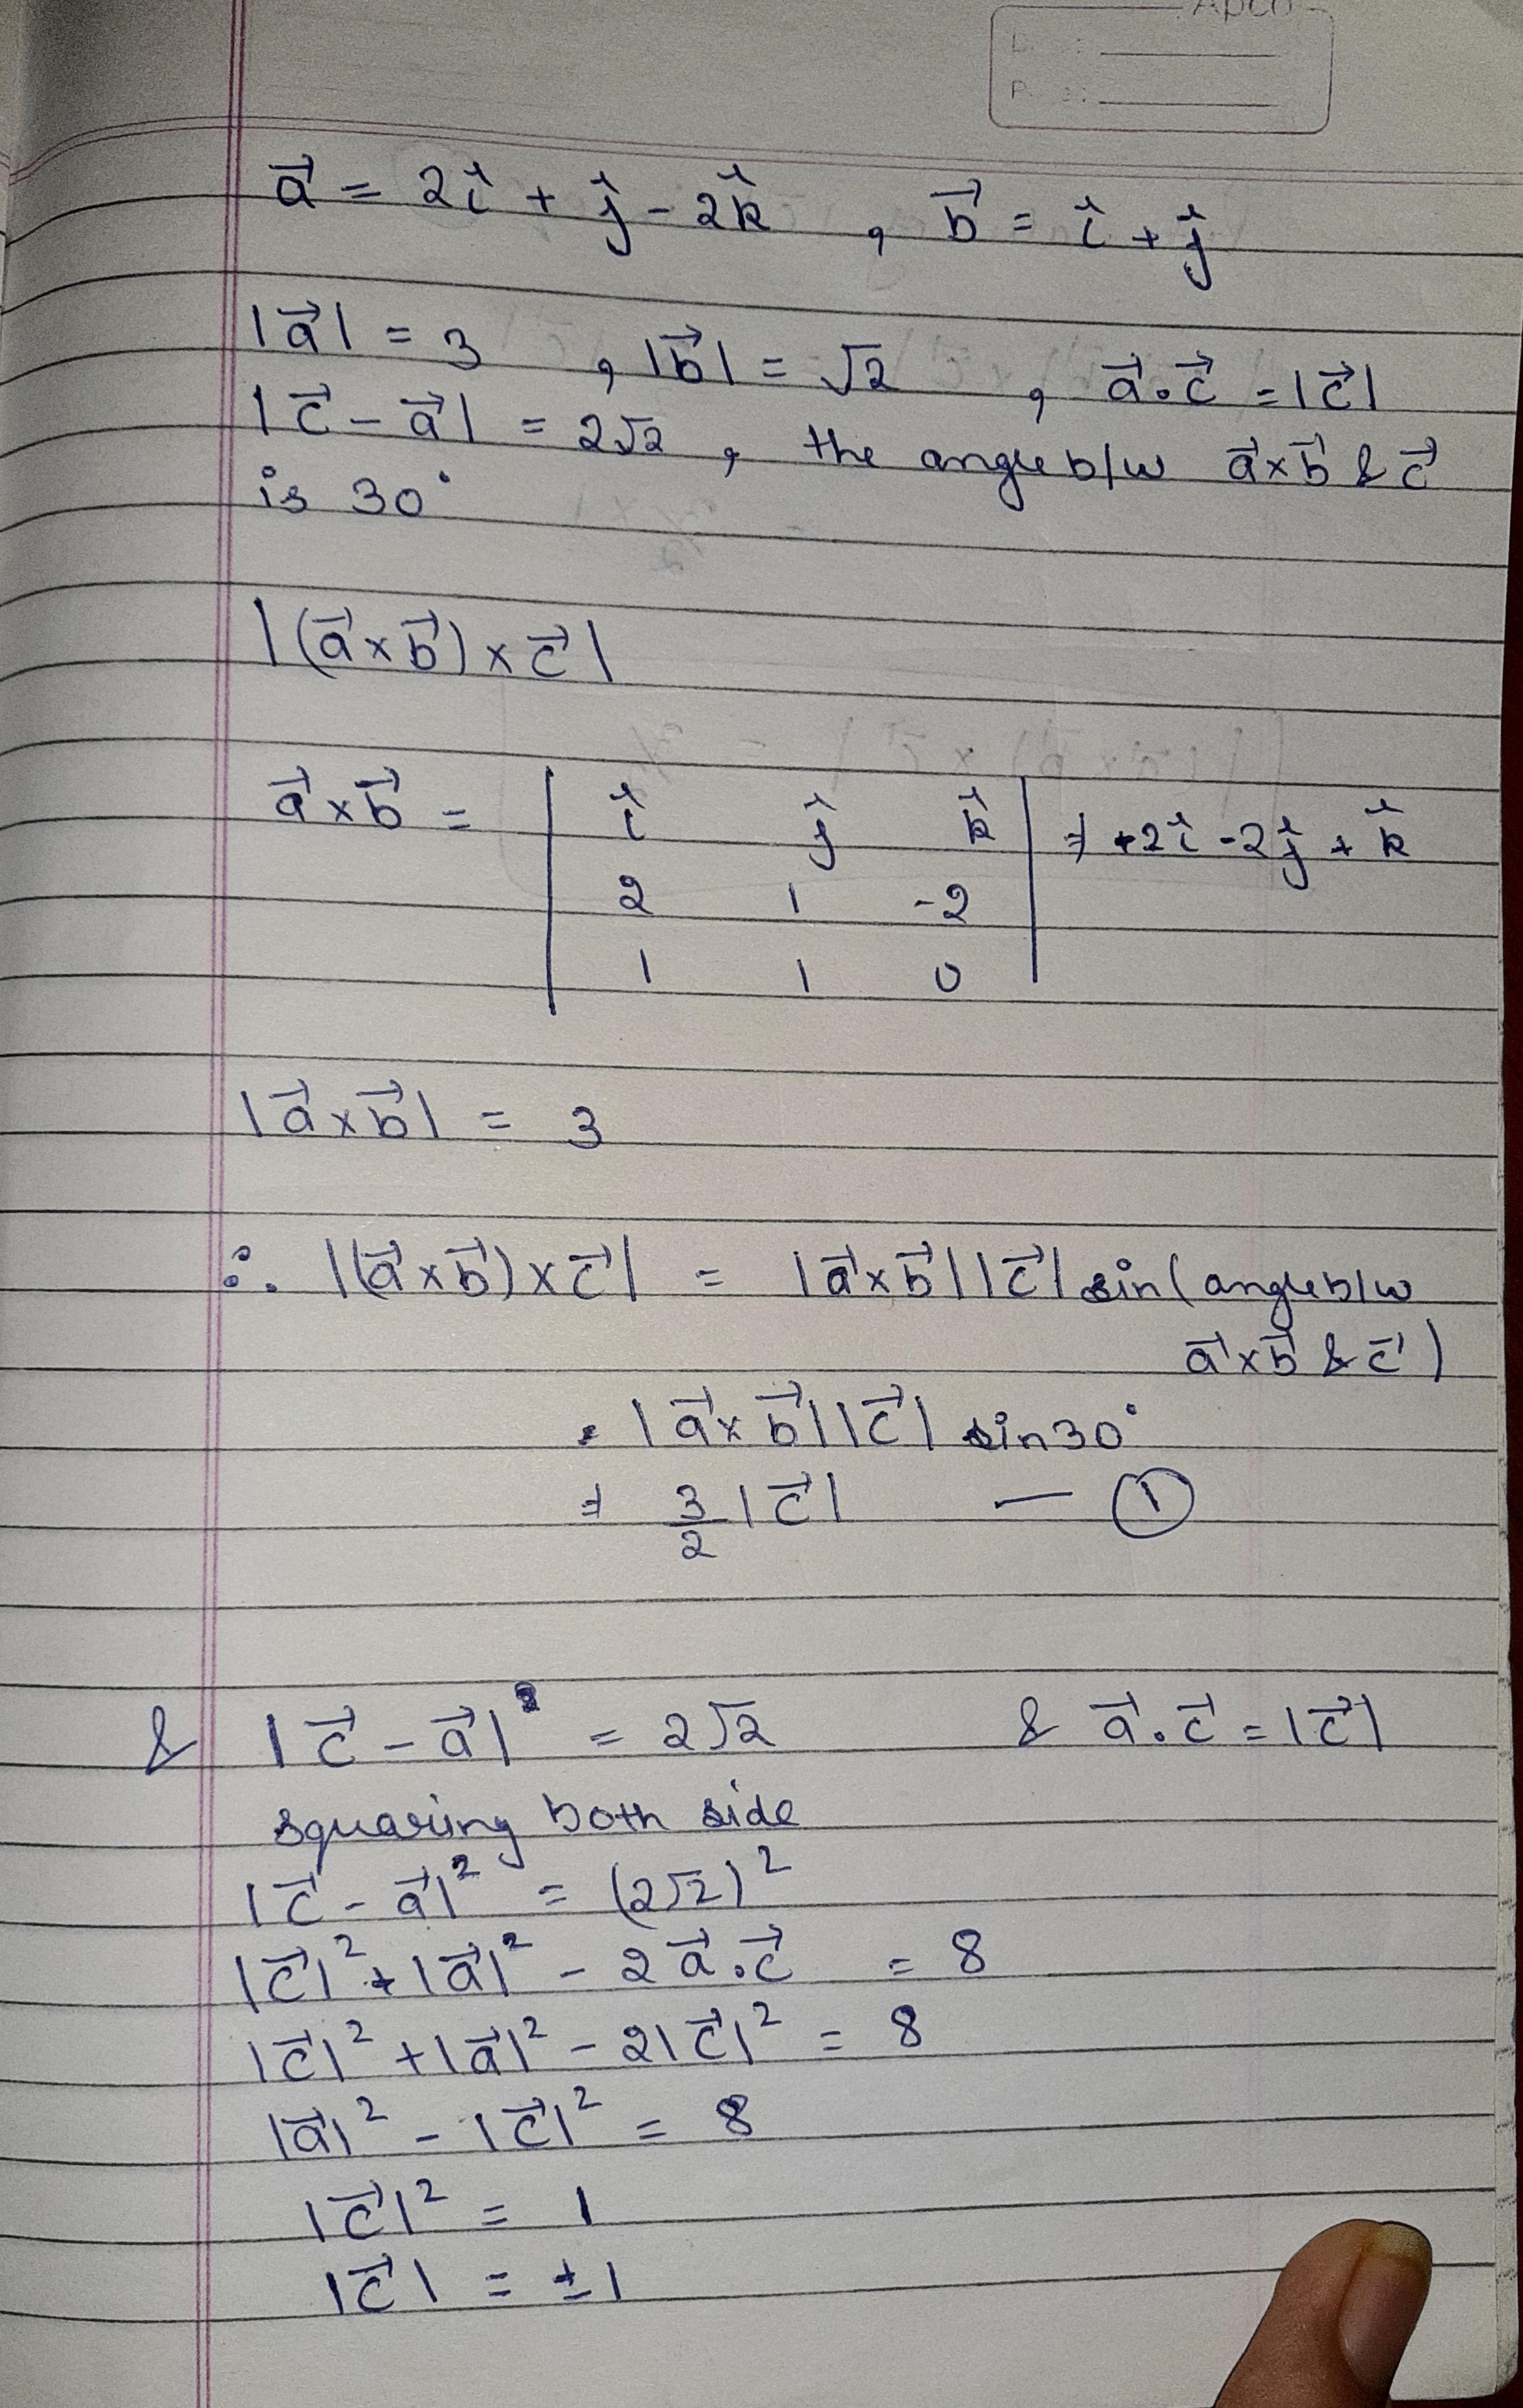 Apco
a⃗ = 2î + ĵ - 2k̂ , b⃗ = î + ĵ
|a⃗| = 3 , |b⃗| = √2 , a⃗.c⃗ = |c⃗|
|c⃗ - a⃗| = 2√2 , the angle b/w a⃗×b⃗ & c⃗
is 30°
|(a⃗×b⃗)×c⃗|
a⃗×b⃗ = | î ĵ k̂ | ⇒ +2î - 2ĵ + k̂
2 1 -2
1 1 0
|a⃗×b⃗| = 3
∴ |(a⃗×b⃗)×c⃗| = |a⃗×b⃗||c⃗| sin(angle b/w
a⃗×b⃗ & c⃗)
= |a⃗×b⃗||c⃗| sin30°
⇒ 3/2 |c⃗| — ①
& |c⃗ - a⃗| = 2√2 & a⃗.c⃗ = |c⃗|
squaring both side
|c⃗ - a⃗|² = (2√2)²
|c⃗|² + |a⃗|² - 2a⃗.c⃗ = 8
|c⃗|² + |a⃗|² - 2|c⃗|² = 8
|a⃗|² - |c⃗|² = 8
|c⃗|² = 1
|c⃗| = ±1